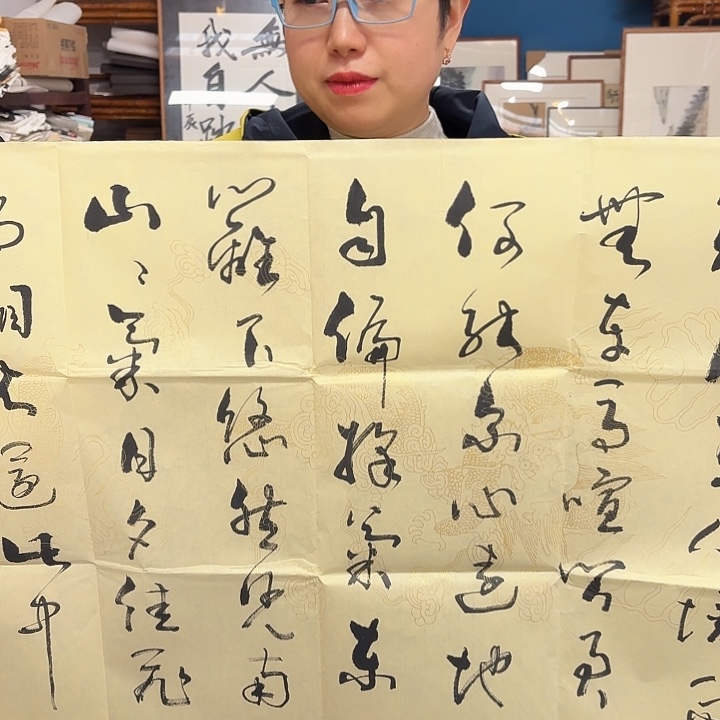 無人
我自
人境而
無車馬喧問君
何能爾心遠地
自偏採菊東
籬下悠然見南
山〻氣日夕佳飛
鳥相與還此中